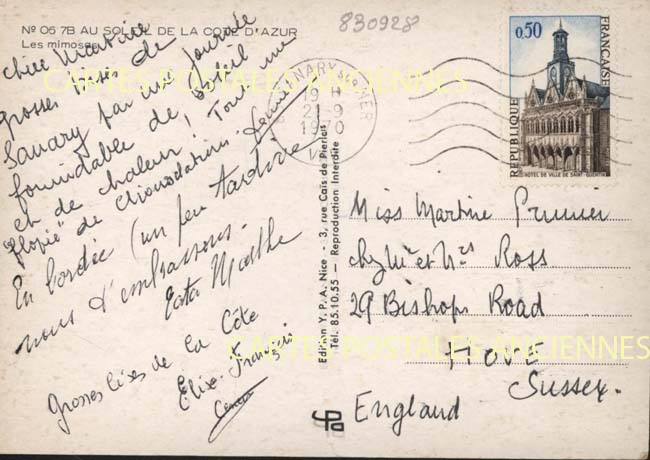 Nº 06 7B AU SOLEIL DE LA COTE D'AZUR
Les mimosas
830928
chère Martine
grosses bises de
Sanary par une journée
formidable de soleil
et de chaleur! Toute une
En bordée (un peu tardive)
nous t'embrassons.
Marthe
Grosses bises de la Côte
Elise. François
Edition Y. P. A. Nice - 3, rue Caïs de Pierlas
Tél. 85.10.55 — Reproduction Interdite
SANARY MER
21-9
1970
VAR
0,50
REPUBLIQUE
FRANCAISE
HOTEL DE VILLE DE SAINT-QUENTIN
Miss Martine Prunier
chez Mr et Mrs Ross
29 Bishops Road
HOVE
Sussex.
England
CARTES POSTALES ANCIENNES
CARTES POSTALES ANCIENNES